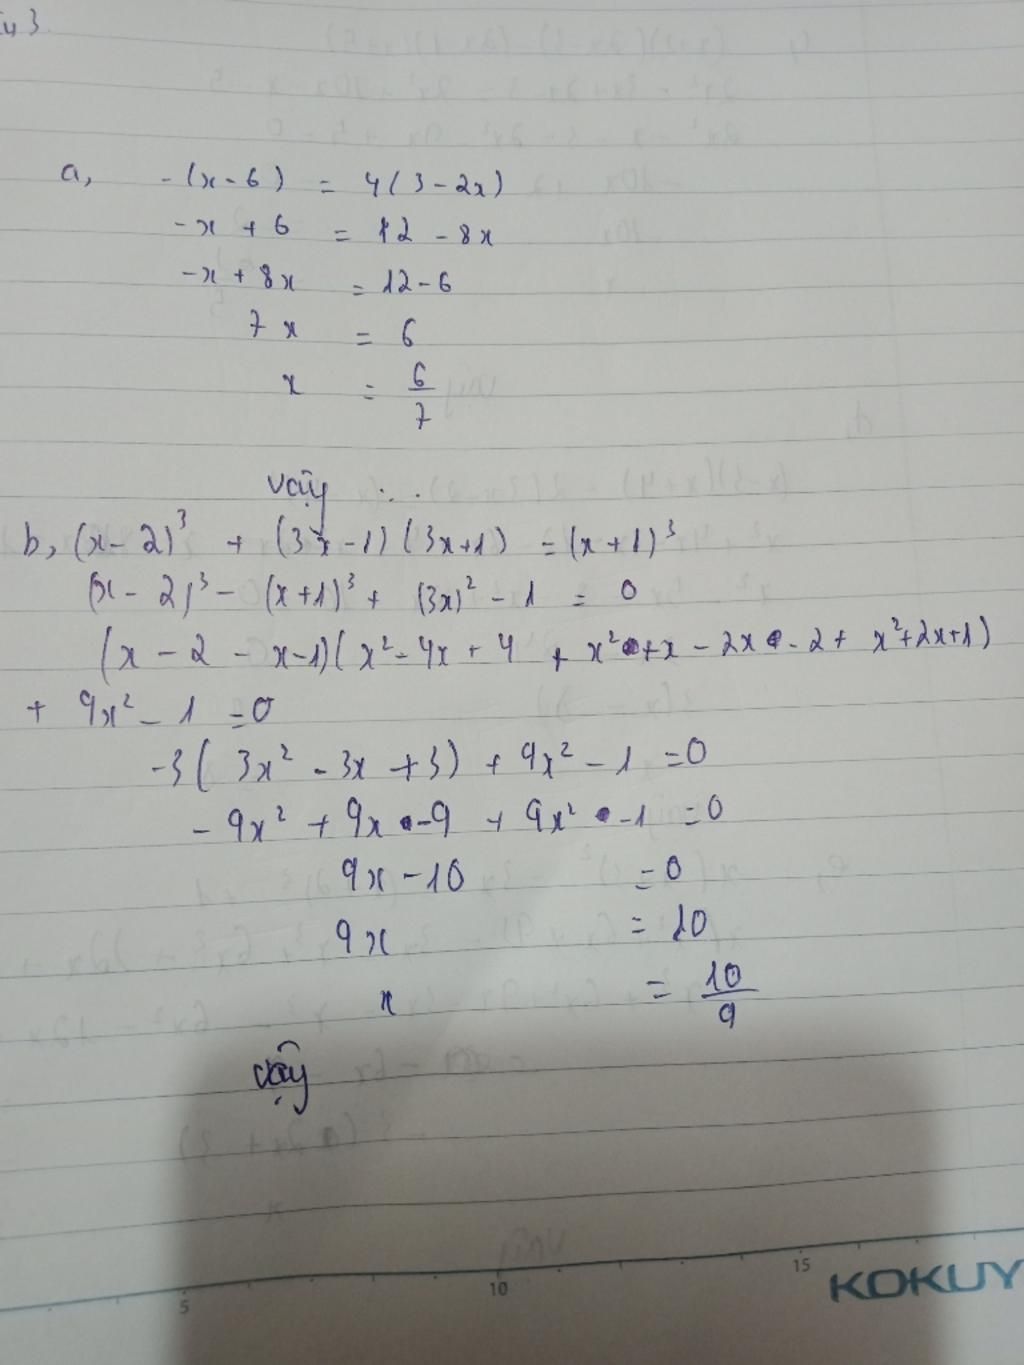 3.
a, -(x-6) = 4(3-2x)
-x + 6 = 12 - 8x
-x + 8x = 12 - 6
7x = 6
x = 6/7
Vậy ...
b, (x-2)³ + (3x-1)(3x+1) = (x+1)³
(x-2)³ - (x+1)³ + (3x)² - 1 = 0
(x - 2 - x-1)(x² - 4x + 4 + x² + x - 2x - 2 + x²+2x+1)
+ 9x² - 1 = 0
-3( 3x² - 3x + 3) + 9x² - 1 = 0
- 9x² + 9x - 9 + 9x² - 1 = 0
9x - 10 = 0
9x = 10
x = 10/9
Vậy
5 10 15
KOKUY